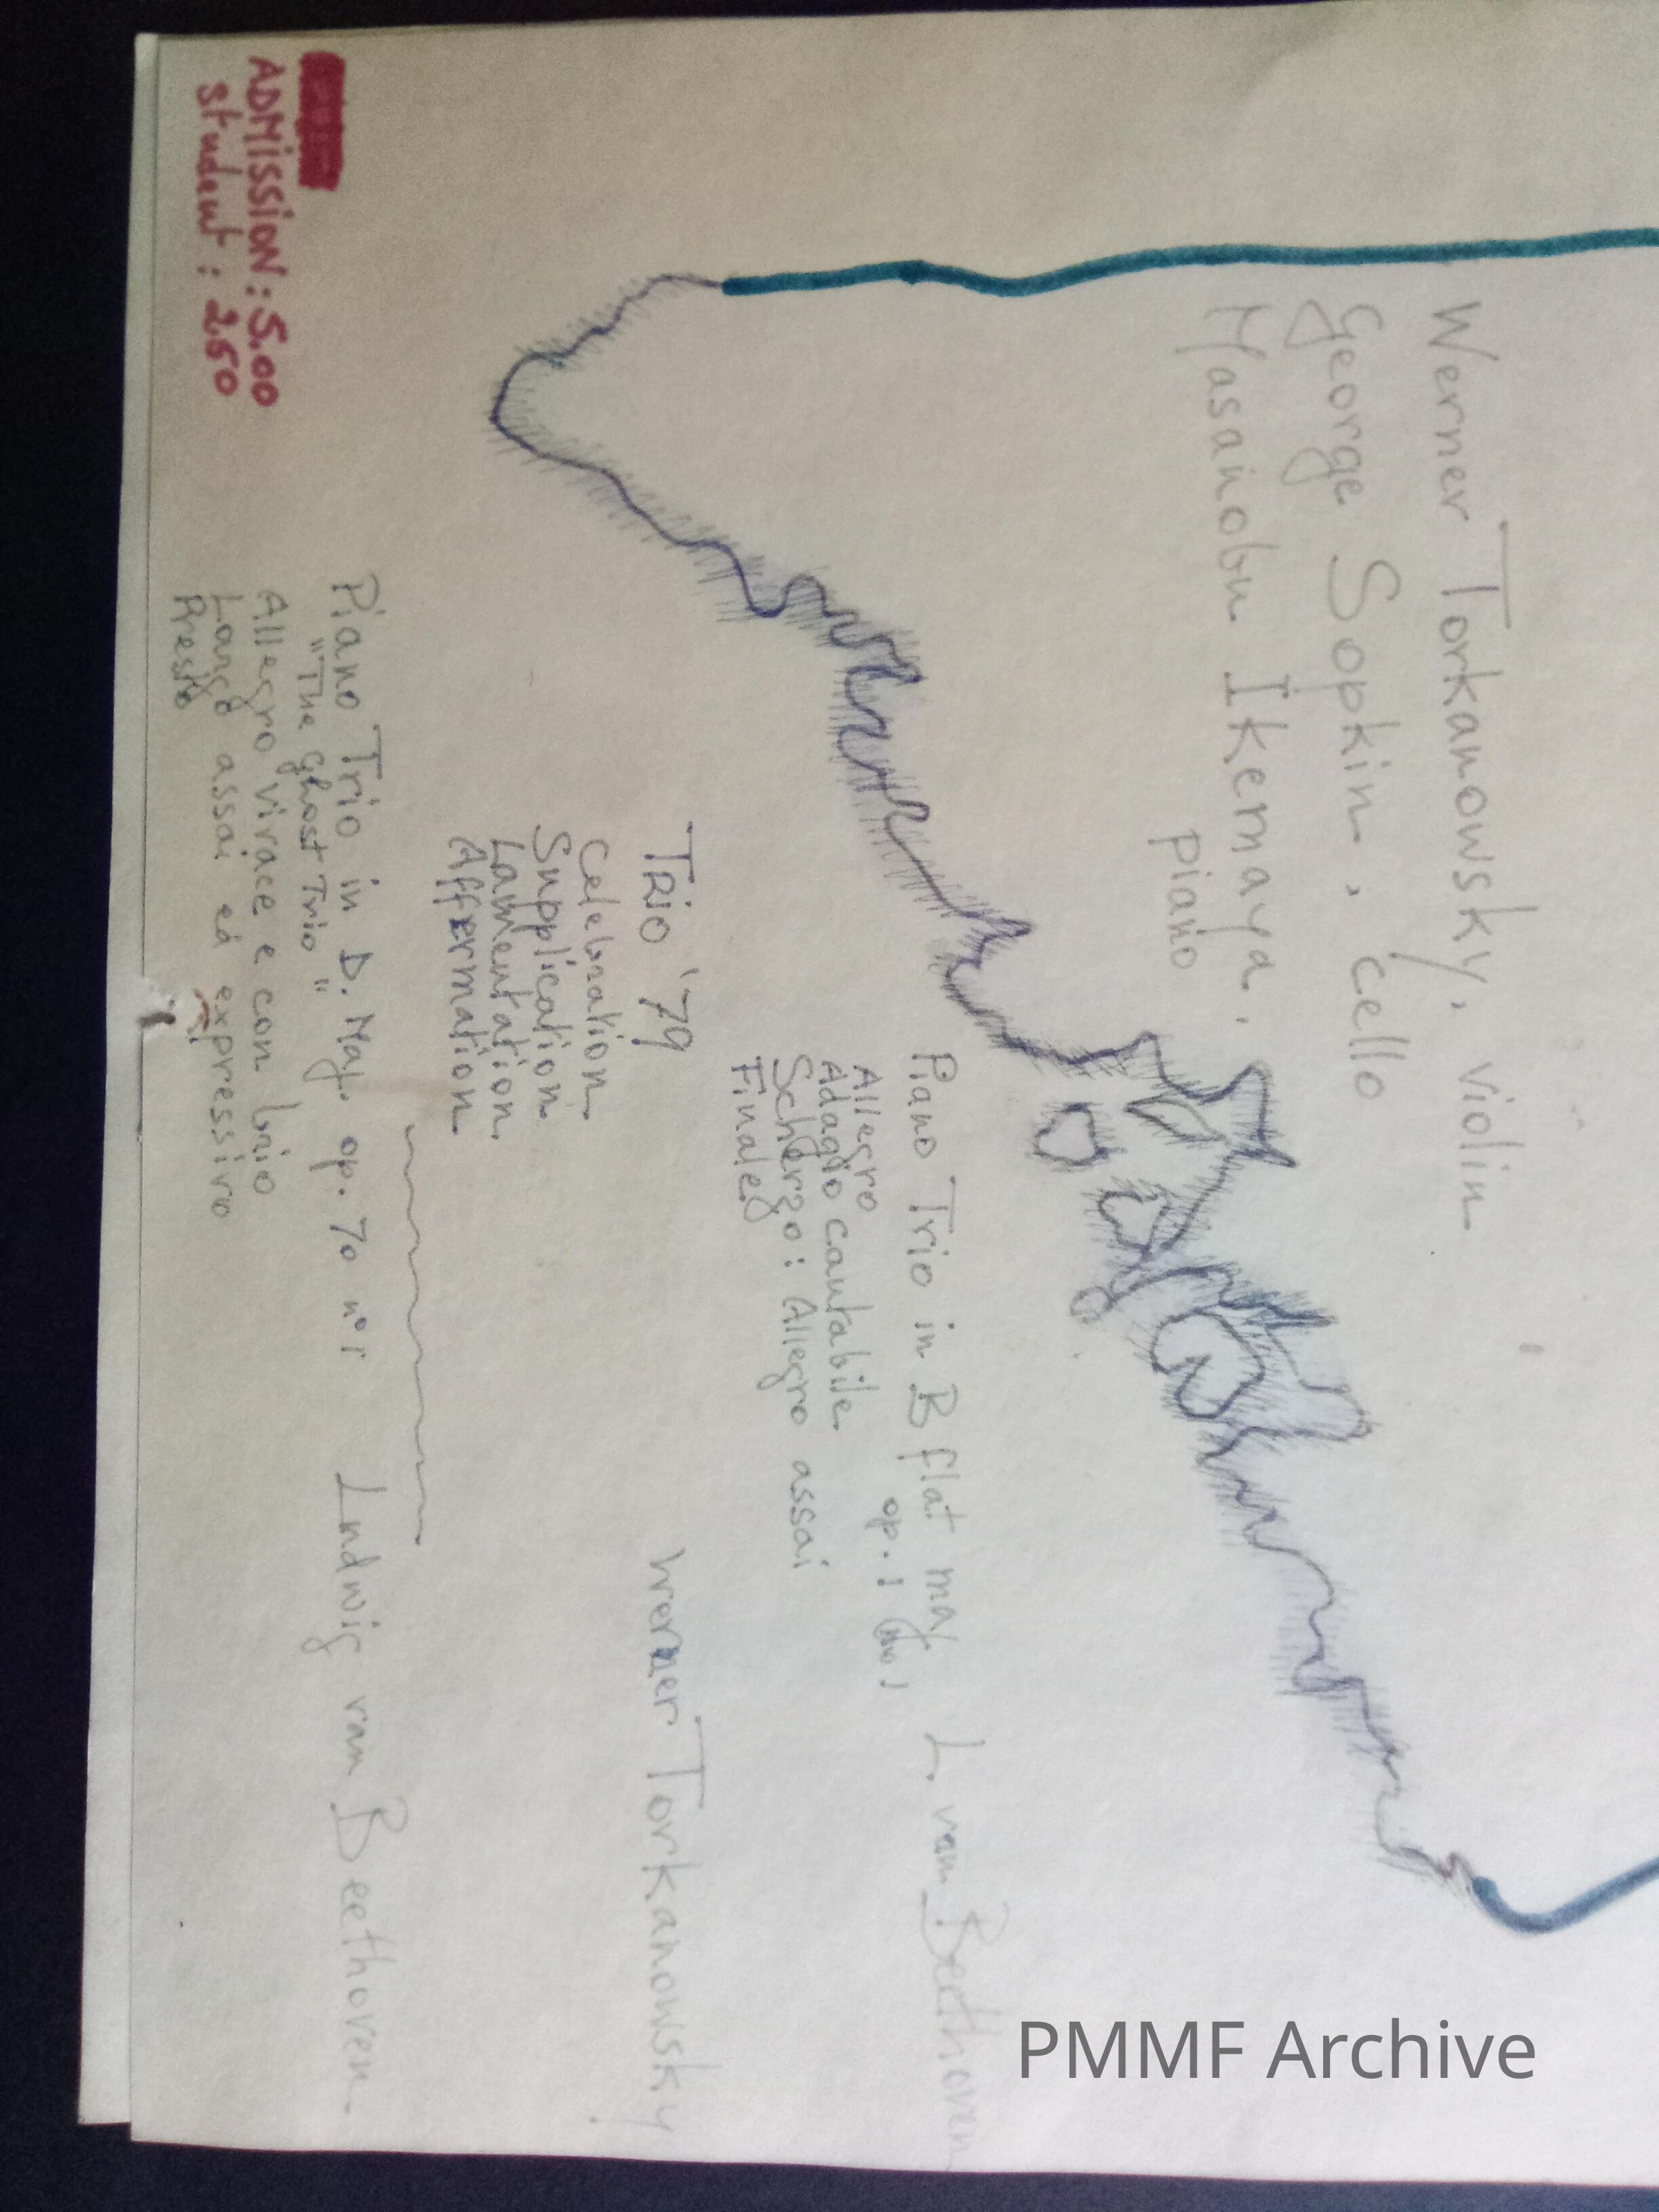 Werner Torkanowsky, violin
George Sopkin, cello
Masanobu Ikemaya,
piano
Piano Trio in B flat maj. L. van Beethoven
op. 1
Allegro
Adagio cantabile
Scherzo: Allegro assai
Finale
TRIO '79 Werner Torkanowsky
Celebration
Supplication
Lamentation
Affermation
Piano Trio in D. Maj. op. 70 n°1 Ludwig van Beethoven
"The Ghost Trio"
Allegro vivace e con brio
Largo assai ed expressivo
Presto
ADMISSION: 5.00
student: 2.50
PMMF Archive